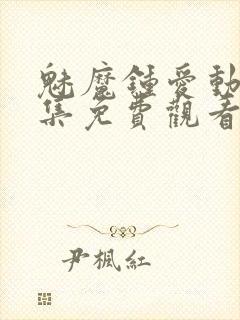 魅魔鍾愛動
集免費觀看
尹楓紅